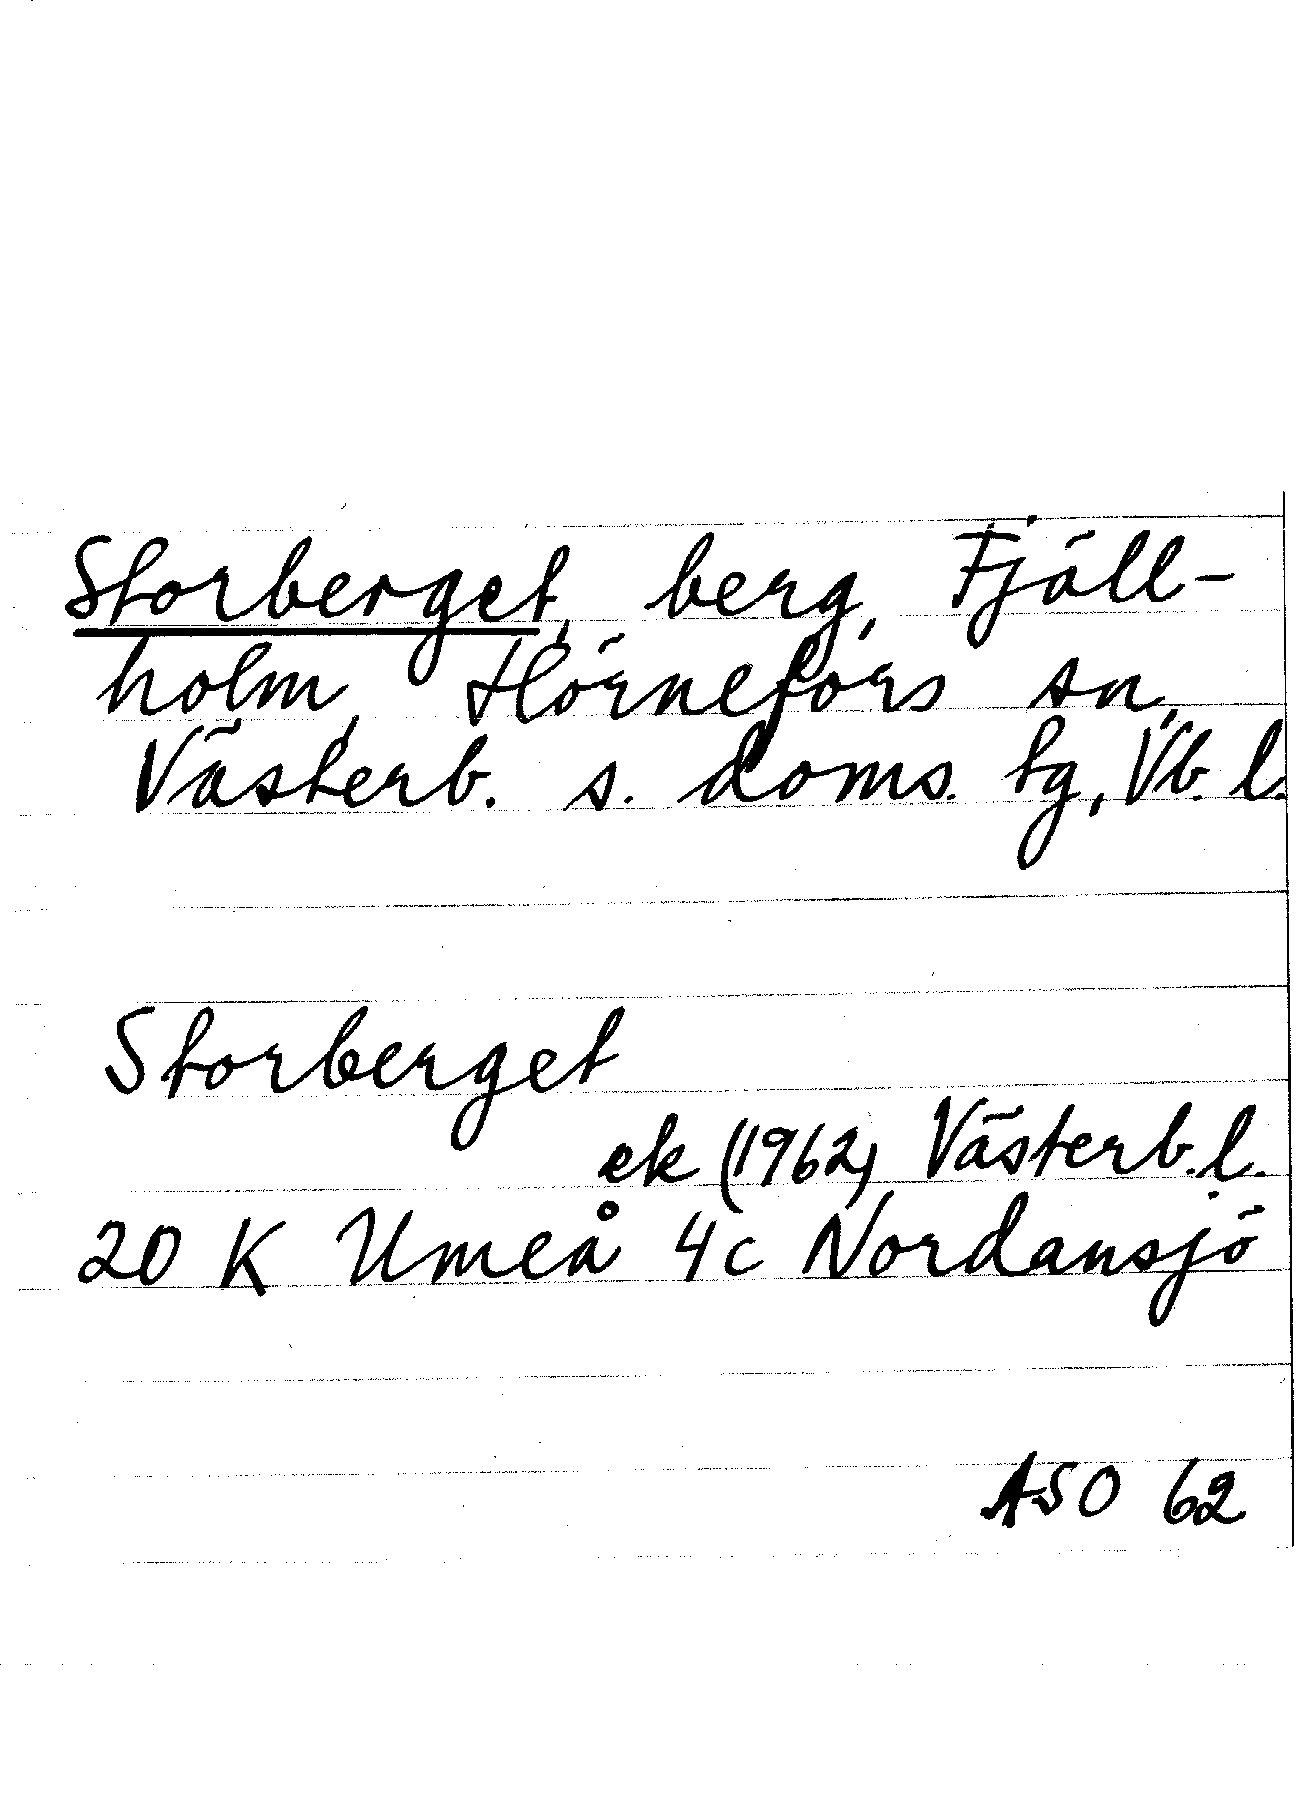 Storberget, berg, Fjäll-
holm, Hörnefors sn,
Västerb. s. doms. tg, Vb. l.
Storberget
ek (1962) Västerb. l.
20 K Umeå 4c Nordansjö
ASO 62